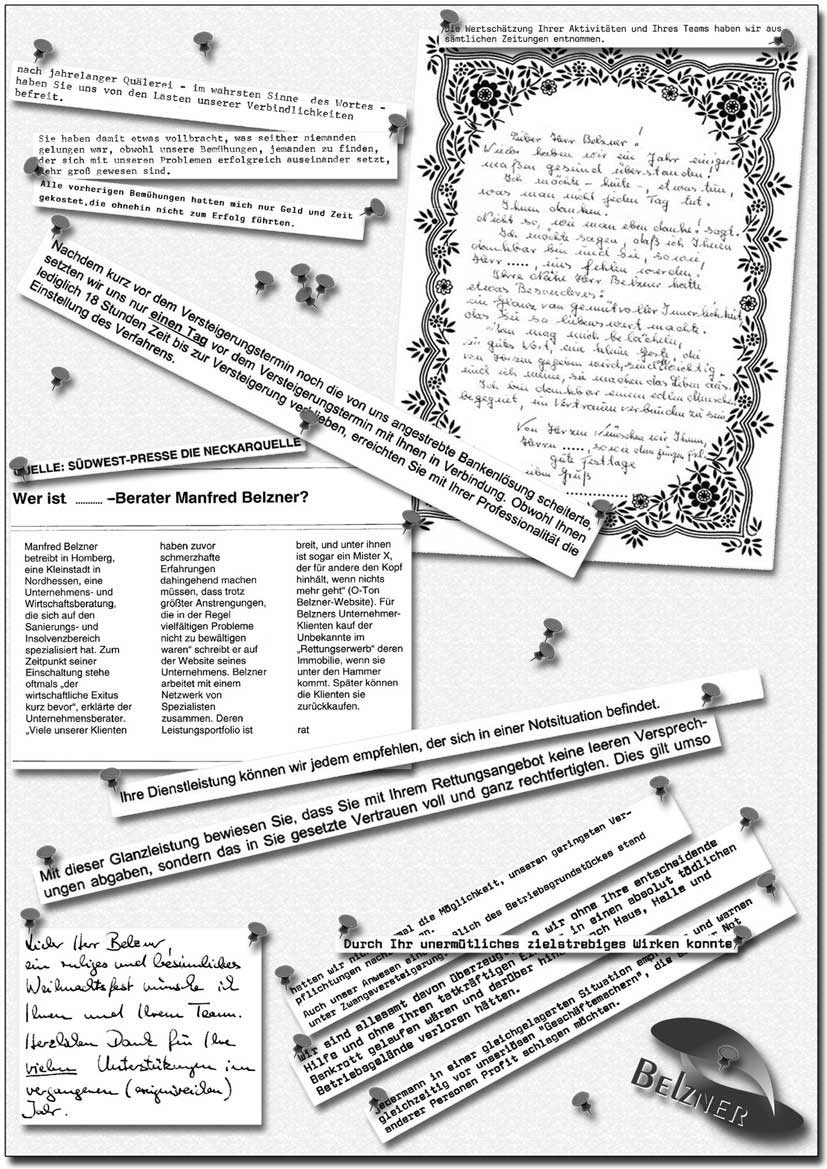 Die Wertschätzung Ihrer Aktivitäten und Ihres Teams haben wir aus
sämtlichen Zeitungen entnommen.
nach jahrelanger Quälerei - im wahrsten Sinne des Wortes -
haben Sie uns von den Lasten unserer Verbindlichkeiten
befreit.
Sie haben damit etwas vollbracht, was seither niemanden
gelungen war, obwohl unsere Bemühungen, jemanden zu finden,
der sich mit unseren Problemen erfolgreich auseinander setzt,
sehr groß gewesen sind.
Alle vorherigen Bemühungen hatten mich nur Geld und Zeit
gekostet,die ohnehin nicht zum Erfolg führten.
Lieber Herr Belzner!
Wieder haben wir ein Jahr einiger
maßen gesund überstanden!
Ich möchte - heute -, etwas tun,
was man nicht jeden Tag tut.
Ihnen danken.
Nicht so, wie man eben danke! sagt.
Ich möchte sagen, daß ich Ihnen
dankbar bin und Sie, sowie!
Herr ..... uns fehlen werden.
Ihre Nähe Herr Belzner hatte
etwas Besonderes:
ein Glanz von gemütvoller Innerlichkeit
das Sie so liebenswert machte.
Man mag auch belächeln,
ein gutes Wort, eine kleine Geste, die
von Herzen gegeben wird, sind wichtig.
und ich meine, sie machen das Leben aus.
Ich bin dankbar einem edlen Menschen
begegnet, im Vertrauen verbunden zu sein.
Von Herzen wünschen wir Ihnen,
Herrn ....., sowie dem jungen Frl.
gute Festtage
Gruß
Nachdem kurz vor dem Versteigerungstermin noch die von uns angestrebte Bankenlösung scheiterte,
setzten wir uns nur einen Tag vor dem Versteigerungstermin mit Ihnen in Verbindung. Obwohl Ihnen
lediglich 18 Stunden Zeit bis zur Versteigerung verblieben, erreichten Sie mit Ihrer Professionalität die
Einstellung des Verfahrens.
QUELLE: SÜDWEST-PRESSE DIE NECKARQUELLE
Wer ist ........... –Berater Manfred Belzner?
Manfred Belzner
betreibt in Homberg,
eine Kleinstadt in
Nordhessen, eine
Unternehmens- und
Wirtschaftsberatung,
die sich auf den
Sanierungs- und
Insolvenzbereich
spezialisiert hat. Zum
Zeitpunkt seiner
Einschaltung stehe
oftmals „der
wirtschaftliche Exitus
kurz bevor“, erklärte der
Unternehmensberater.
„Viele unserer Klienten
haben zuvor
schmerzhafte
Erfahrungen
dahingehend machen
müssen, dass trotz
größter Anstrengungen,
die in der Regel
vielfältigen Probleme
nicht zu bewältigen
waren“ schreibt er auf
der Website seines
Unternehmens. Belzner
arbeitet mit einem
Netzwerk von
Spezialisten
zusammen. Deren
Leistungsportfolio ist
breit, und unter ihnen
ist sogar ein Mister X,
der für andere den Kopf
hinhält, wenn nichts
mehr geht“ (O-Ton
Belzner-Website). Für
Belzners Unternehmer-
Klienten kauf der
Unbekannte im
„Rettungserwerb“ deren
Immobilie, wenn sie
unter den Hammer
kommt. Später können
die Klienten sie
zurückkaufen.
rat
Ihre Dienstleistung können wir jedem empfehlen, der sich in einer Notsituation befindet.
Mit dieser Glanzleistung bewiesen Sie, dass Sie mit Ihrem Rettungsangebot keine leeren Versprech-
ungen abgaben, sondern das in Sie gesetzte Vertrauen voll und ganz rechtfertigten. Dies gilt umso
hatten wir nic mal die Möglichkeit, unseren geringsten Ver-
pflichtungen nach
Auch unser Anwesen ein lich des Betriebsgrundstückes stand
unter Zwangsversteigerung.
Durch Ihr unermütliches zielstrebiges Wirken konnte
Wir sind allesamt davon überzeug wir ohne Ihre entscheidende
Hilfe und ohne Ihren tatkräftigen Ei in einen absolut tödlichen
Bankrott gelaufen wären und darüber hin ch Haus, Halle und
Betriebsgelände verloren hätten.
Jedermann in einer gleichgelagerten Situation empf und warnen
gleichzeitig vor unseriösen "Geschäftemachern", die Not
anderer Personen Profit schlagen möchten.
Lieber Herr Belzner,
ein ruhiges und besinnliches
Weihnachtsfest wünsche ich
Ihnen und Ihrem Team.
Herzlichen Dank für Ihre
vielen Unterstützungen im
vergangenen (ereignisreichen)
Jahr.
BELZNER